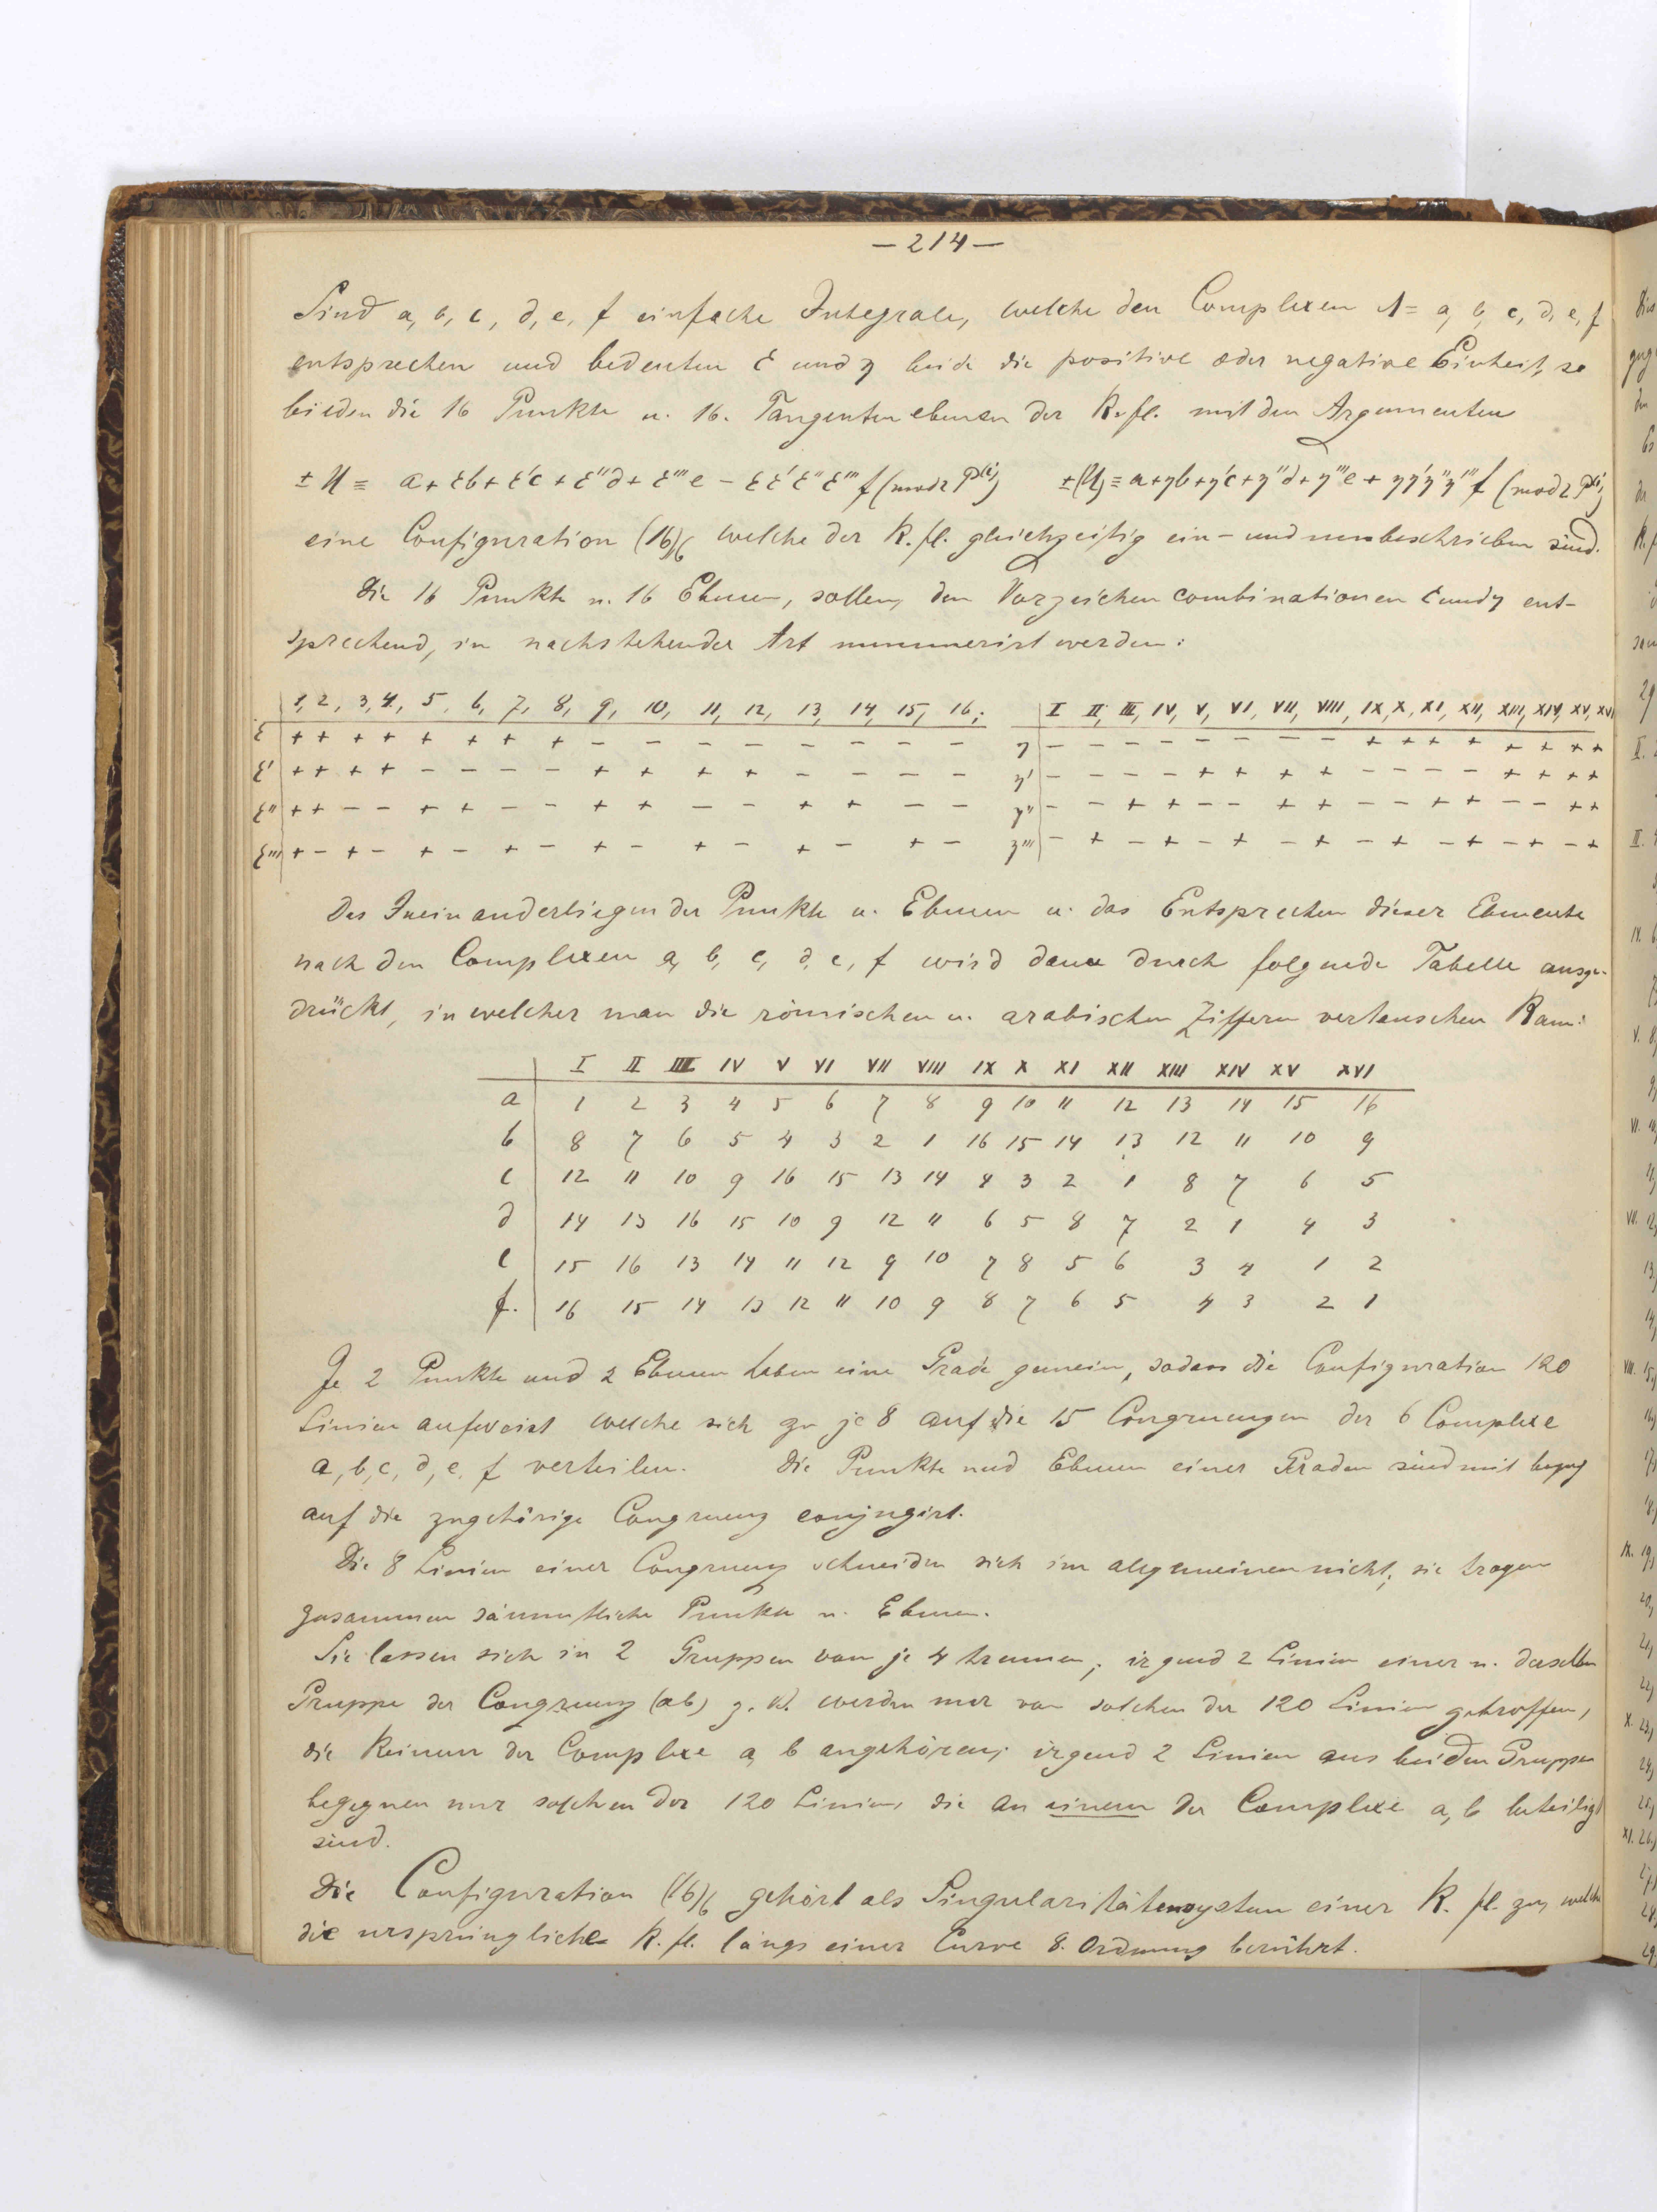 — 214 —
Sind a, b, c, d, e, f einfache Integrale, welche den Complexen Λ = a, b, c, d, e, f
entsprechen und bedeuten ε und η beide die positive oder negative Einheit, so
bilden die 16 Punkte u. 16. Tangentenebenen der K.fl. mit den Argumenten
± U ≡ a + εb + ε'c + ε''d + ε'''e − εε'ε''ε''' f (mod 2 P⁽ⁱ⁾) ±(U) ≡ a + ηb + η'c + η''d + η'''e + ηη'η''η''' f (mod 2 P⁽ⁱ⁾)
eine Configuration (16)₆ welche der K.fl. gleichzeitig ein- und umbeschrieben sind.
Die 16 Punkte u. 16 Ebenen, sollen, den Vorzeichencombinationen ε und η ent-
sprechend, in nachstehender Art nummerirt werden:
1, 2, 3, 4, 5, 6, 7, 8, 9, 10, 11, 12, 13, 14, 15, 16; I II, III, IV, V, VI, VII, VIII, IX, X, XI, XII, XIII, XIV, XV, XVI
ε + + + + + + + + − − − − − − − − η − − − − − − − − + + + + + + + +
ε' + + + + − − − − + + + + − − − − η' − − − − + + + + − − − − + + + +
ε'' + + − − + + − − + + − − + + − − η'' − − + + − − + + − − + + − − + +
ε''' + − + − + − + − + − + − + − + − η''' − + − + − + − + − + − + − + − +
Das Ineinanderliegen der Punkte u. Ebenen u. das Entsprechen dieser Elemente
nach den Complexen a, b, c, d, e, f wird dann durch folgende Tabelle ausge-
drückt, in welcher man die römischen u. arabischen Ziffern vertauschen kann:
I II III IV V VI VII VIII IX X XI XII XIII XIV XV XVI
a 1 2 3 4 5 6 7 8 9 10 11 12 13 14 15 16
b 8 7 6 5 4 3 2 1 16 15 14 13 12 11 10 9
c 12 11 10 9 16 15 13 14 4 3 2 1 8 7 6 5
d 14 13 16 15 10 9 12 11 6 5 8 7 2 1 4 3
e 15 16 13 14 11 12 9 10 7 8 5 6 3 4 1 2
f. 16 15 14 13 12 11 10 9 8 7 6 5 4 3 2 1
Je 2 Punkte und 2 Ebenen haben eine Grade gemein, sodass die Configuration 120
Linien aufweist welche sich zu je 8 auf die 15 Congruenzen der 6 Complexe
a, b, c, d, e, f verteilen. Die Punkte und Ebenen einer Graden sind mit bezug
auf die zugehörige Congruenz conjugirt.
Die 8 Linien einer Congruenz schneiden sich im allgemeinen nicht; sie tragen
zusammen sämmtliche Punkte u. Ebenen.
Sie lassen sich in 2 Gruppen von je 4 trennen; irgend 2 Linien einer u. derselben
Gruppe der Congruenz (ab) z. B. werden nur von solchen der 120 Linien getroffen,
die keinem der Complexe a, b angehören; irgend 2 Linien aus beiden Gruppen
begegnen nur solchen der 120 Linien, die an einem der Complexe a, b beteiligt
sind.
Die Configuration (16)₆ gehört als Singularitätensystem einer K. fl. zu, welche
die ursprüngliche K. fl. längs einer Curve 8. Ordnung berührt.